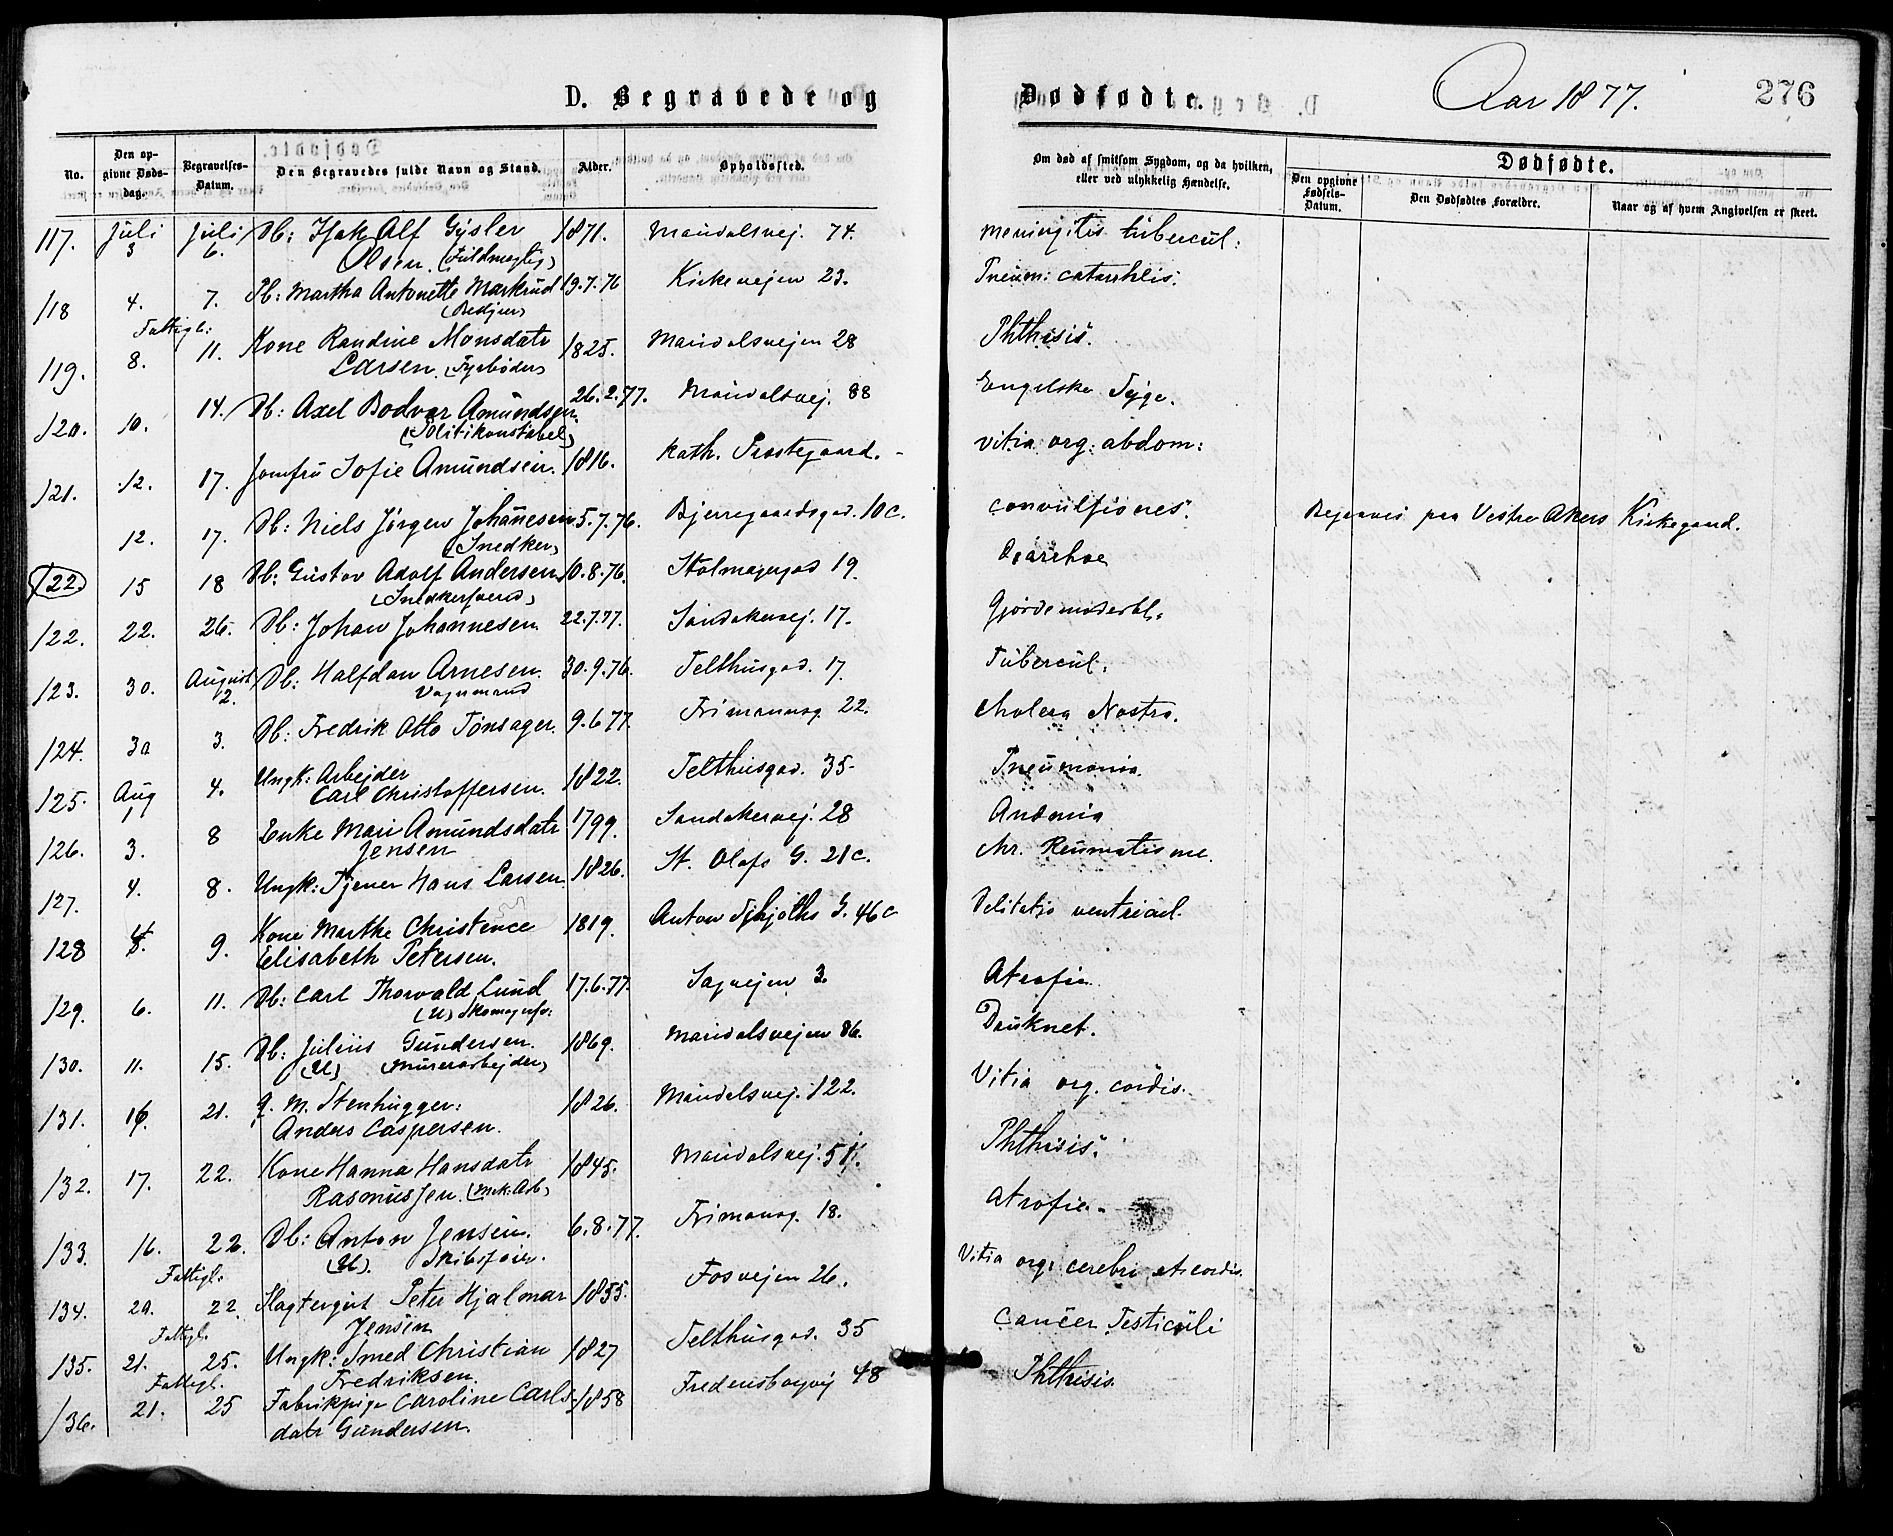 D. Begravede og
Dødfødte.
Aar 1877.
276
No.
Den opgivne Dødsdag.
Begravelses-Datum.
Den Begravedes fulde Navn og Stand.
Alder.
Opholdssted.
Om død af smitsom Sygdom, og da hvilken, eller ved ulykkelig Hændelse.
Dødfødte.
Den opgivne Fødsels-Datum.
Den Dødfødtes Forældre.
Naar og af hvem Angivelsen er skeet.
117. Juli 3 Juli 6. Db: Isak Alf Gisler 1871. Maridalsvej. 74. Meningitis tubercul:
Olsen. (Fuldmægtig)
118 4. 7. Pb: Martha Antonette Markrud 19.7.76 Kirkevejen 23. Pneum: catarrhlis.
(Betjen)
Fattigl:
119. 8. 11. Kone Randine Monsdatr 1825. Maridalsvejen 28 Phthisis.
Larsen.
120. 10. 14. Db: Axel Bodvar Amundsen 26.2.77. Maridalsvej. 88 Engelske Syge.
(Politikonstabel)
121. 12. 17. Jomfru Sofie Amundsen. 1816. Kath. Præstegaard. vitia org: abdom:
12. 17. Db: Niels Jørgen Johannesen 5.7.76. Bjerregaardsgad. 10c. convulsiones. Begraves paa Vestre Akers Kirkegaard.
(Snedker)
122. 15 18 Db: Gustav Adolf Andersen 10.8.76. Stolmagergad 19. Diarrhoe
(Snedkersvend)
122. 22. 26. Db: Johan Johannesen. 22.7.77. Sandakervej. 17. Gjordemoderbl.
123. 30. August 2. Db: Halfdan Arnesen. 30.9.76. Telthusgad. 17. Tubercul.
Vognmand
124. 30 3. Db: Fredrik Otto Tonsager. 9.6.77. Frimannsg. 22. Cholera Nostra.
125. Aug 1 4. Ungk: Arbejder 1822. Telthusgad. 35 Pneumonia.
Carl Christoffersen.
126. 3. 8 Enke Mari Amundsdatr 1799. Sandakervej. 28 Anæmia
Jensen
127. 4. 8. Ungk: Tjener Hans Larsen. 1826. St. Olafs G. 21c. Chr. Reumatisme.
128 4. 9. Kone Marthe Christence 1819. Anton Schjøths G. 46c ventricul.
Elisabeth Petersen.
129. 6. 11. Db: Carl Thorvald Lund 17.6.77. Sagvejen 3. Atrofie.
(U) Skomagersv:
130. 11. 15. Db: Julius Gundersen. 1869. Maridalsvejen 86. Druknet.
(U) (Murerarbejder)
131. 16. 21. G. M. Stenhugger: 1826. Maridalsvej. 122. Vitia org. cordis.
Anders Caspersen.
132. 17. 22. Kone Hanna Hansdatr 1845. Maridalsvej. 51. Phthisis.
Rasmussen. (Mek. Arb)
133. 16. 22. Db: Anton Jensen. 6.8.77. Frimannsg. 18. Atrofie.
(U).
Fattigl.
134. 20. 22. Slagtergut Peter Hjalmar 1855. Fosvejen 26. Vitia org: cerebri et cordis.
Jensen
Fattigl.
135. 21. 25. Ungk: Smed Christian 1827 Telthusgad. 35 Cancer Testiculi
Fredriksen.
Fattigl.
136. 21. 25 Fabrikpige Caroline Carls- 1858 Fredensborgvej 48 Phthisis.
datr Gundersen.